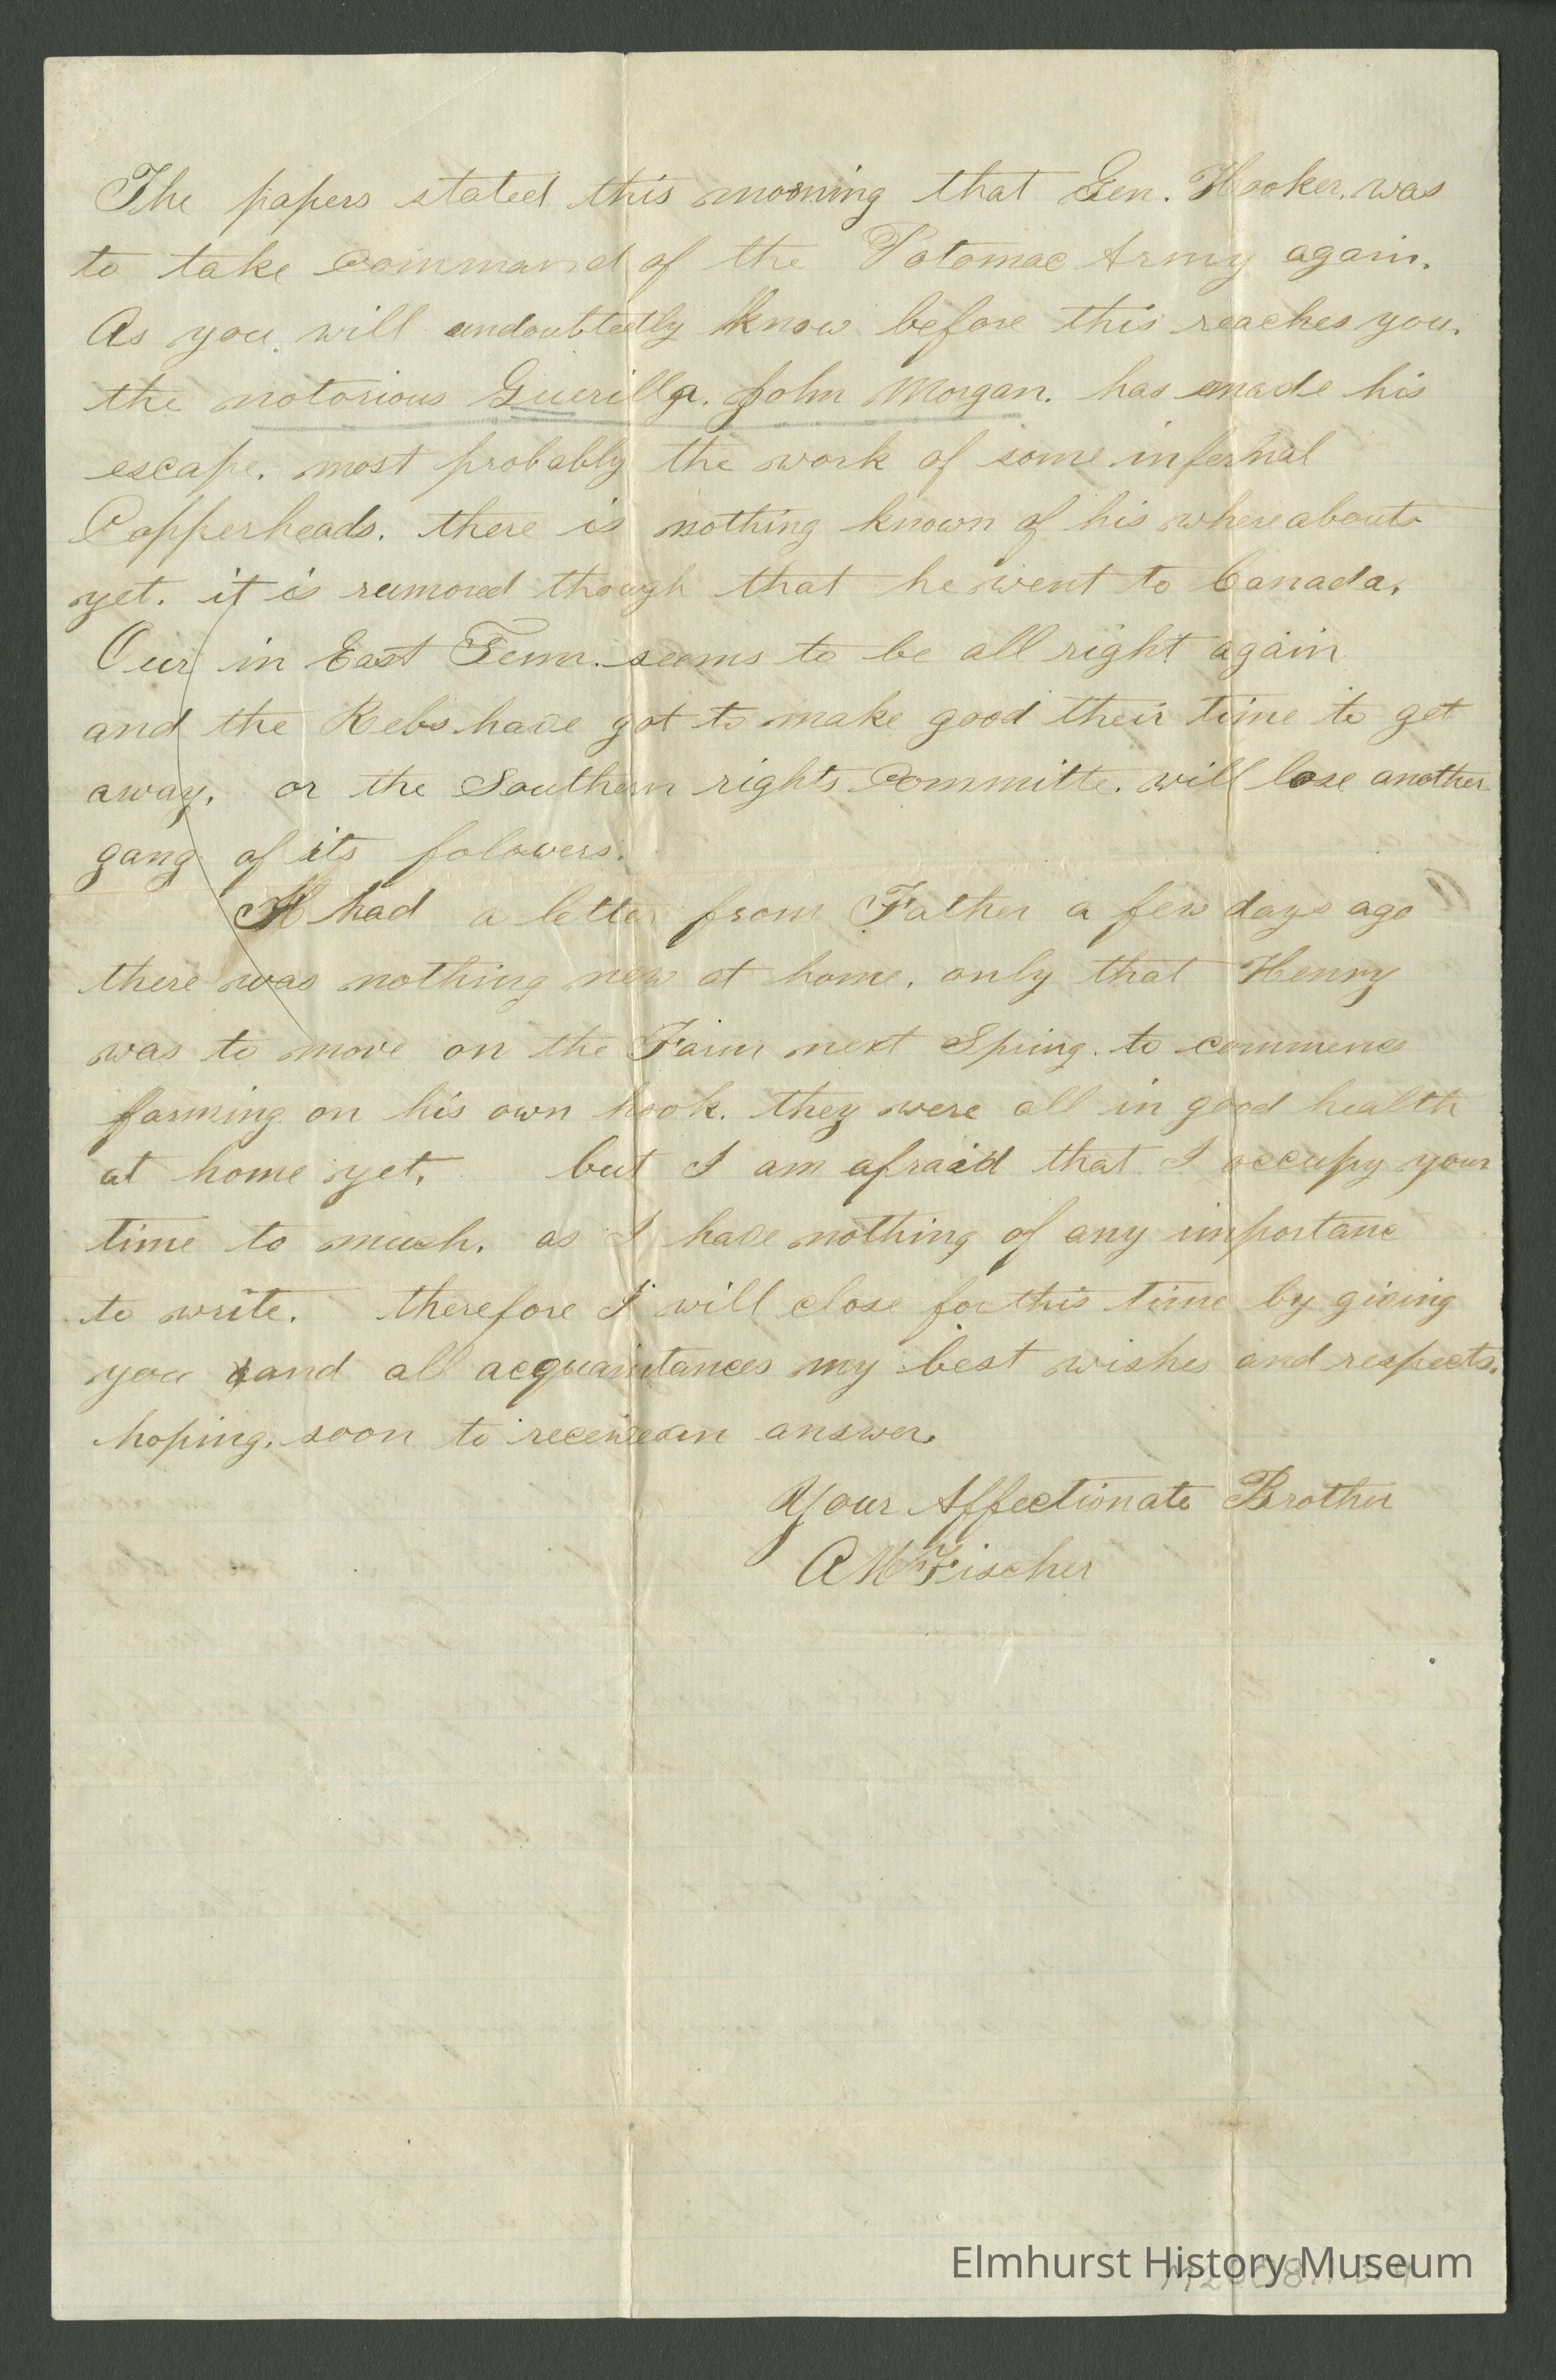 The papers stated this morning that Gen. Hooker. was
to take command of the Potomac Army again.
As you will undoubtedly know before this reaches you.
the notorious Guerilla. John Morgan. has made his
escape. most probably the work of some infernal
Copperheads. there is nothing known of his whereabouts
yet. it is rumored though that he went to Canada.
Our in East Tenn. seems to be all right again
and the Rebs have got to make good their time to get
away. or the Southern rights Committe. will lose another
gang of its folowers.
I had a letter from Father a few days ago
there was nothing new at home. only that Henry
was to move on the Farm next Spring. to commence
farming on his own hook. they were all in good health
at home yet. but I am afraid that I occupy your
time to much. as I have nothing of any importanc
to write. therefore I will close for this time by giving
you and all acquaintances my best wishes and respects.
hoping. soon to receive an answer.
Your Affectionate Brother
A M Fischer
Elmhurst History Museum